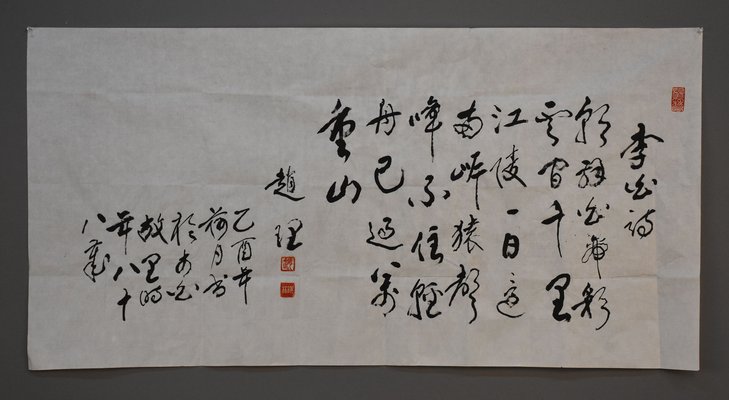 李白詩
朝辞白帝彩
雲间千里
江陵一日還
兩岸猿聲
啼不住輕
舟已過萬
重山
趙理
乙酉年
荷月书
於白
故里時
年八十
八歲